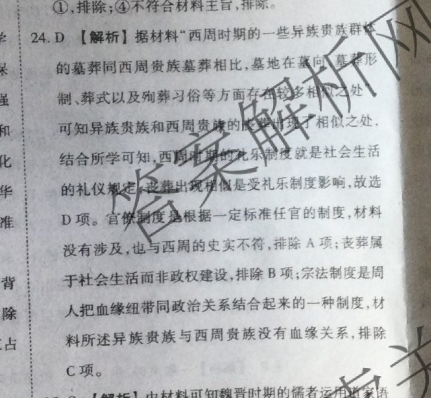 ①,排除;④不符合材料主旨,排除。
24. D 【解析】据材料“西周时期的一些异族贵族群体
的墓葬同西周贵族墓葬相比,墓地在墓向、墓葬形
制、葬式以及殉葬习俗等方面存在较多相似之处”
可知异族贵族和西周贵族的丧葬出现了相似之处,
结合所学可知,西周时期的礼乐制度就是社会生活
的礼仪规定,丧葬出现相似是受礼乐制度影响,故选
D 项。官僚制度是根据一定标准任官的制度,材料
没有涉及,也与西周的史实不符,排除 A 项;丧葬属
于社会生活而非政权建设,排除 B 项;宗法制度是周
人把血缘纽带同政治关系结合起来的一种制度,材
料所述异族贵族与西周贵族没有血缘关系,排除
C 项。
【解析】由材料可知魏晋时期的儒者运用道家语
保
强
和
化
华
准
背
除
占
答案解析网
关